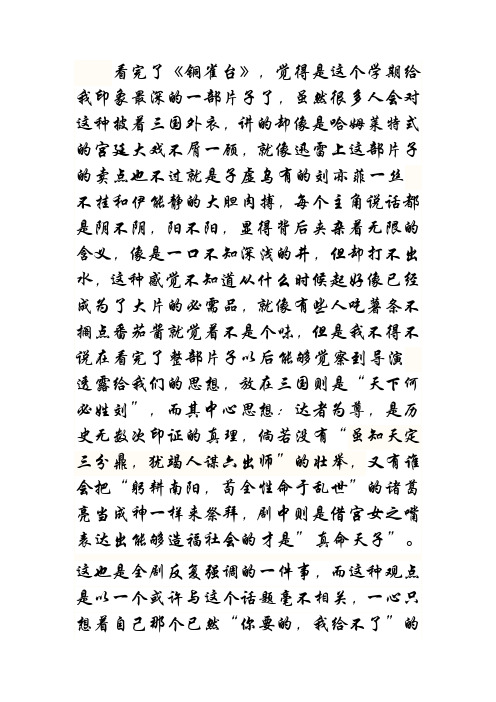 看完了《铜雀台》，觉得是这个学期给
我印象最深的一部片子了，虽然很多人会对
这种披着三国外衣，讲的却像是哈姆莱特式
的宫廷大戏不屑一顾，就像迅雷上这部片子
的卖点也不过就是子虚乌有的刘亦菲一丝
不挂和伊能静的大胆肉搏，每个主角说话都
是阴不阴，阳不阳，显得背后夹杂着无限的
含义，像是一口不知深浅的井，但却打不出
水，这种感觉不知道从什么时候起好像已经
成为了大片的必需品，就像有些人吃薯条不
搁点番茄酱就觉着不是个味，但是我不得不
说在看完了整部片子以后能够觉察到导演
透露给我们的思想，放在三国则是“天下何
必姓刘”，而其中心思想：达者为尊，是历
史无数次印证的真理，倘若没有“虽知天定
三分鼎，犹竭人谋六出师”的壮举，又有谁
会把“躬耕南阳，苟全性命于乱世”的诸葛
亮当成神一样来祭拜，剧中则是借宫女之嘴
表达出能够造福社会的才是”真命天子”。
这也是全剧反复强调的一件事，而这种观点
是以一个或许与这个话题毫不相关，一心只
想着自己那个已然“你要的，我给不了”的